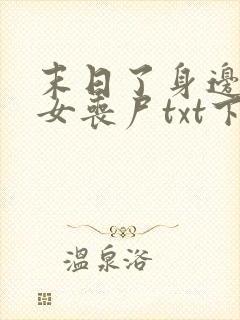 末日了身邊
女喪尸txt下
溫泉浴